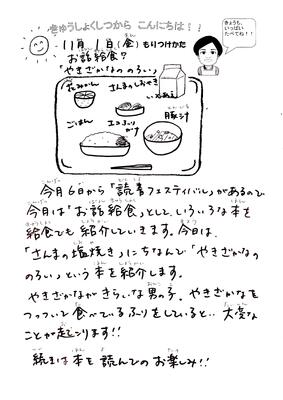 きゅうしょくしつから こんにちは
きょうも、
いっぱい
たべてね!!
11月 1日(金)もりつけかた
お話給食?
「やきざかなののろい」
さんまのしおやき
いそあえ
ごはん
豚汁
今月6日から「読書フェスティバル」があるので
今月は「お話給食」として、いろいろな本を
給食でも紹介していきます。今日は、
「さんまの塩焼き」にちなんで「やきざかなの
のろい」という本を紹介します。
やきざかながきらいな男の子。やきざかなを
つっついて食べているふりをしていると‥大変な
ことが起こります!!
続きは本を読んでのお楽しみ!!